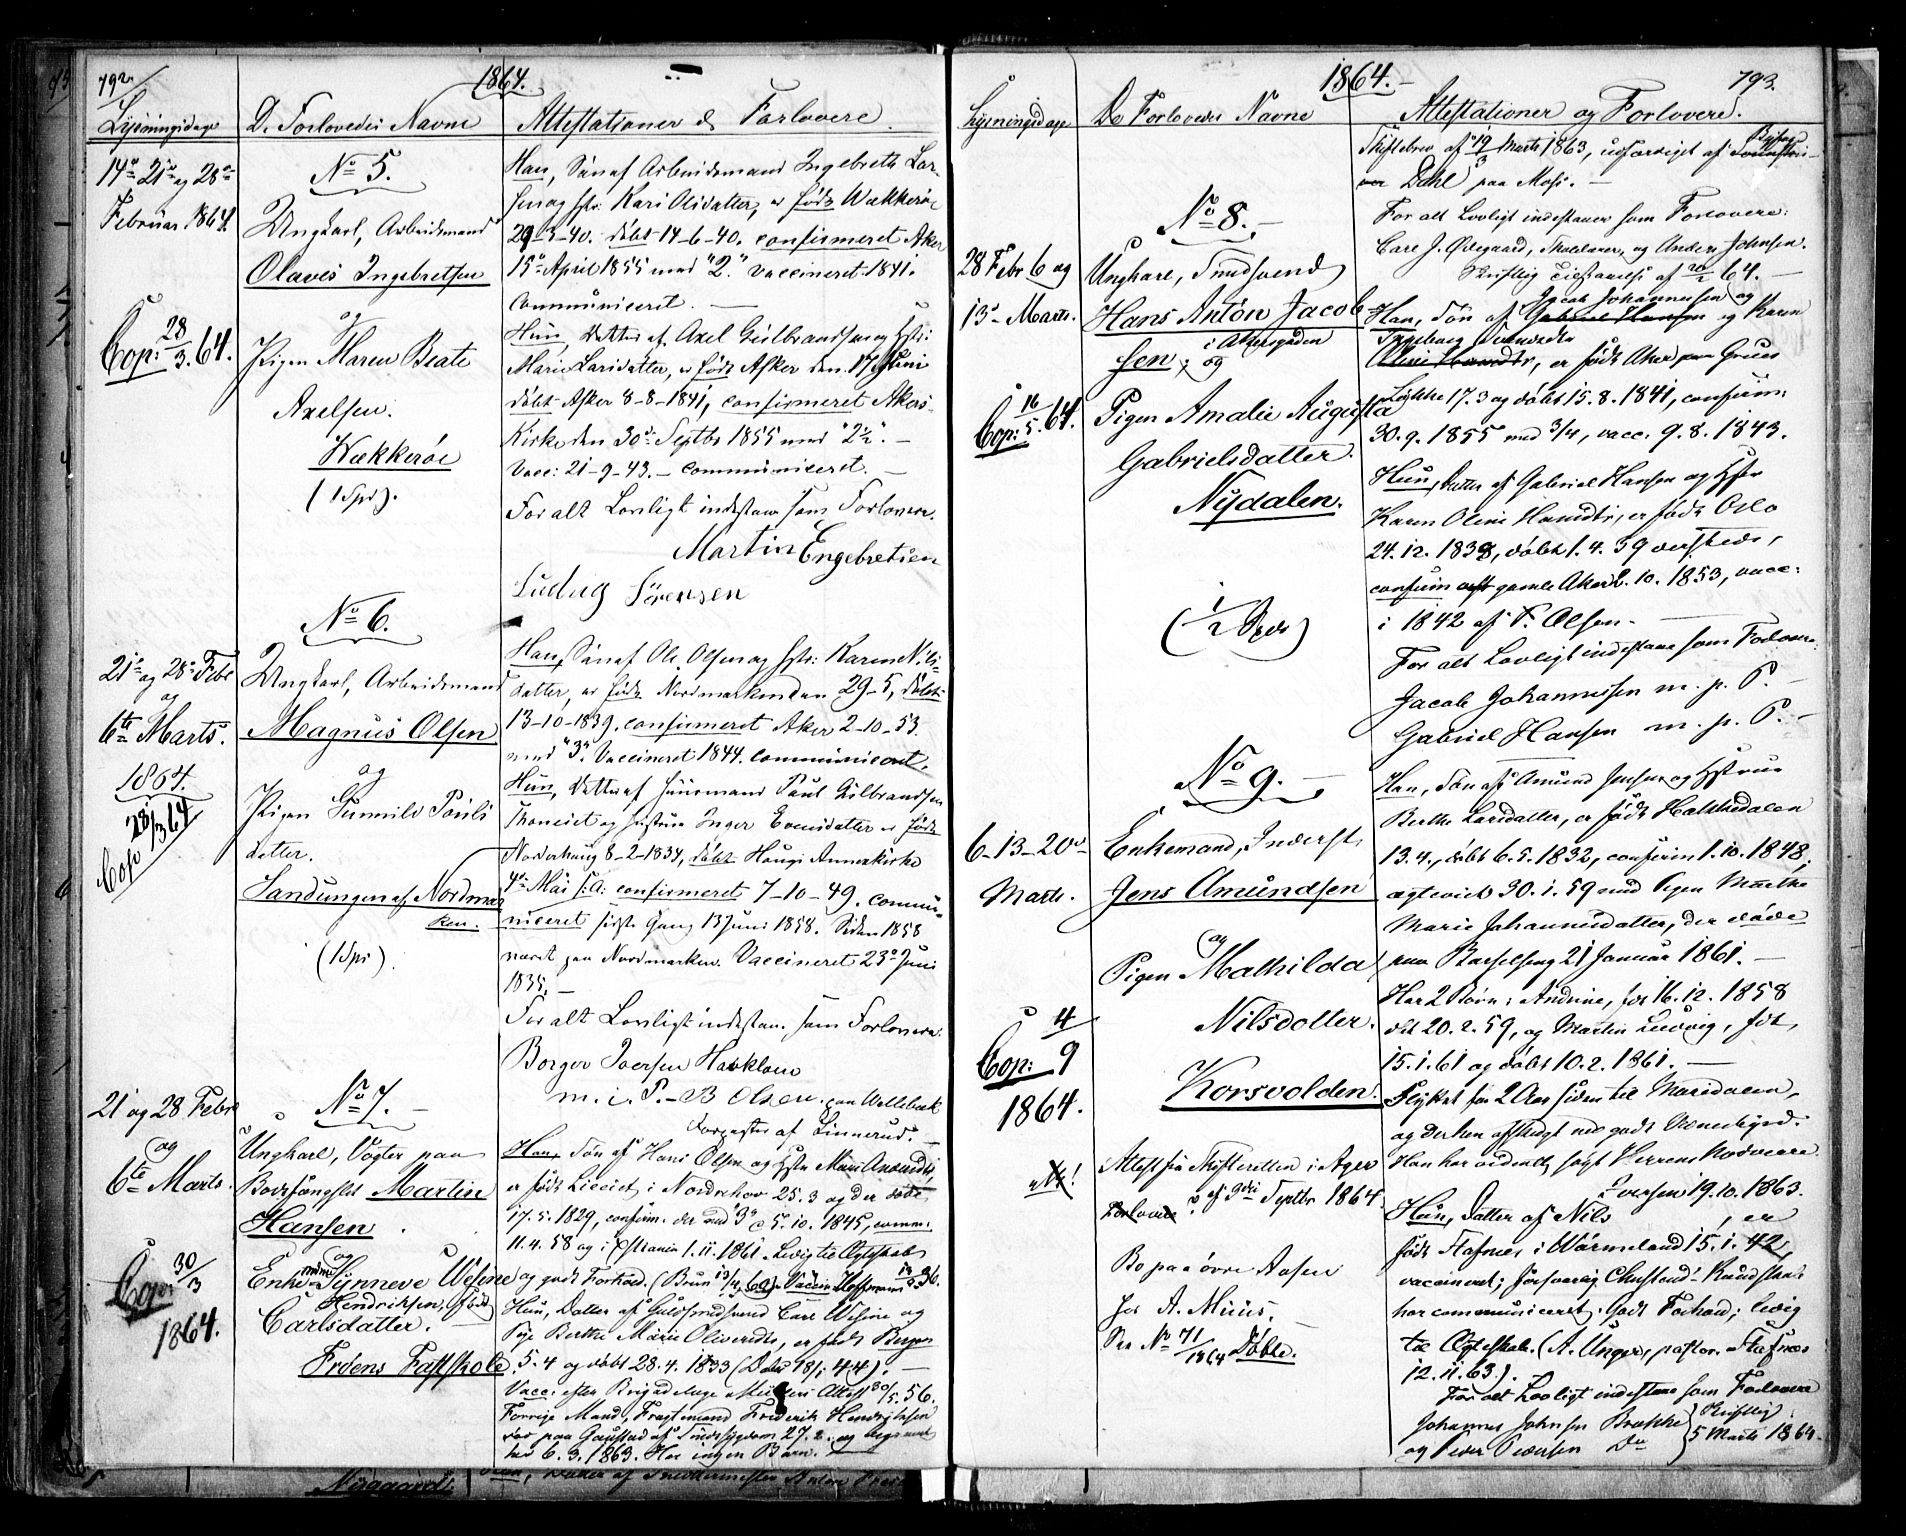 792
1864.
Lysningsdage
D. Forlovedes Navne
Attestationer & Forlovere.
14de 21de og 28de
Februar 1864.
Cop: 28/3.64.
No 5.
Ungkarl, Arbeidsmand
Olaves Ingebretsen
og
Pigen Maren Beate
Axelsen.
Wækkerøe
(1 Spd).
Han, Søn af Arbeidsmand Ingebreth Lar-
sen og Hstr: Kari Olsdatter, er født Wækkerøe
døbt 14-6-40. confirmeret Aker
15de April 1855 med "2." vaccineret 1841.
communiceret.
Hun, Datter af Axel Gulbrandsen og Hstr:
Marie Larsdatter, er født Asker den 17 Juni
døbt Asker 8-8-1841, confirmeret Akers-
Kirke den 30de Septbr 1855 med "2½".
Vacc: 21-9-43. communiceret.
For alt Lovligt indestaae som Forlovere.
Martin Engebretsen
Ludvig Sörensen
21de og 28de Febr
og
6te Marts.
1864.
Cop 28/3 64
No 6.
Ungkarl, Arbeidsmand
Magnus Olsen
og
Pigen Gunnild Pouls
datter.
Sandungen af Nordmar
ken.
(1 Spd).
Han, Søn af Ole Olsen og Hstr: Karen Nils
datter, er født Nordmarken den 29-5, døbt
13-10-1839, confirmeret Aker 2-10-53.
med "3". Vaccineret 1844. communiceret.
Hun, Datter af Huusmand Paul Gulbrandsen
og Hustru Inger Evensdatter er født
Norderhaug 8-2-1834, døbt Haugs Annexkirke
4de Mai s: a: confirmeret 7-10-49. commu-
niceret sidste Gang 13 Juni 1858. Siden 1858
været paa Nordmarken. Vaccineret 23de Juni
1835.
For alt Lovligt indestaae som Forlovere.
Borger Iversen
m. i. P. B Olsen
21 og 28 Febr
og
6te Marts.
Cop: 30/3
1864.
No 7.
Ungkarl, Vogter paa
Bodsfængslet Martin
Hansen
og
Enke Synneve Wesine
Hendriksen, født
Carlsdatter.
Frøens Fattskole.
Han, Søn af Hans Olsen og Hstr Mari
er født i Norderhov 25.3 og der døbt
17.5.1829, confirm. der med "3" 5.10.1845, comm:
11.4.58 og i Xstiania 1.11.1861. Ledig til Ægteskab
og godt Forhold.
Hun, Datter af Guldsmedsvend Carl Wesine og
Pige Berthe Marie Olivesdtr, er født Bergen
5.4 og døbt 28.4.1833
Vacc: efter Brigadelæge Attest 30/5.56.
Forrige Mand, Fragtemand Frederik Hendriksen
døe paa Gaustad af Sindssygdom 27.2. og begravet
her 6.3.1863. Har ingen Børn.
1864.
793.
Lysningsdage
De Forlovedes Navne
Attestationer og Forlovere.
Skiftebrev af 19/3 Marts 1863, udfærdiget af Byfoged
Dahl paa Moss.
For alt Lovligt indestaaer som Forlovere:
Carl J. Øvegaard, og Anders Johnsen.
Skriftlig Tilstaaelse af 20/2 64.
28 Febr 6 og
13de Marts.
Cop: 16/5.64.
No 8.
Ungkarl, Smedsvend
Hans Anton Jacob
sen, i Akersgaden
og
Pigen Amalie Augusta
Gabrielsdatter.
Nydalen.
(1/2 Spd)
Han, Søn af Jacob Johannesen og Karen
Ingeborg Svendsdtr
er født Aker paa Gruus
Løkke 17.3 og døbt 15.8.1841, confirm:
30.9.1855 med 3/4, vacc. 9.8.1843.
Hun, Datter af Gabriel Hansen og Hstr
Karen Oline er født Oslo
24.12.1838, døbt 1.4.39 dersteds,
confirm gamle Aker 2.10.1853, vacc:
i 1842 af P. Olsen.
For alt Lovligt indestaae som Forlovere.
Jacob Johannesen m. p. P.
Gabriel Hansen m. p. P.
6-13-20de
Marts.
Cop: 4/9
1864.
No 9.
Enkemand, Inderst,
Jens Amundsen
og
Pigen Mathilda
Nilsdotter.
Korsvolden.
Attest fra Skifteretten i Ager
af 9de Septbr 1864.
Bo paa øvre Aasen
hos A. Muus.
See No 71/1864 Døbte.
Han, Søn af Amund Jensen og Hstrue
Berthe Larsdatter, er født
13.4., døbt 6.5.1832, confirm 1.10.1848,
ægteviet 30.1.59 med Pigen Marthe
Marie Johannesdatter, der døde
paa Barselseng 21 Januar 1861.
Har 2 Børn: Andrine, født 16.12.1858
dbt 20.2.59, og Martin Ludvig, født,
15.1.61 og døbt 10.2.1861.
Flyttet for 2 Aar siden til Maridalen,
og derhen afflyttet med godt Vidnesbyrd.
Iversen 19.10.1863.
Hun, Datter af Nils , er
født Stafnes i Wärmeland 15.1.42,
vaccineret; forsvarlig Christend: Kundskab
har communiceret. Godt Forhold; ledig
til Ægteskab. (A. Unger, pastor. Stafnæs
12.11.63).
For alt Lovligt indestaae som Forlovere
Johannes Johnsen Brække
og Peder Pedersen Do
Skriftlig
5 Marts 1864.